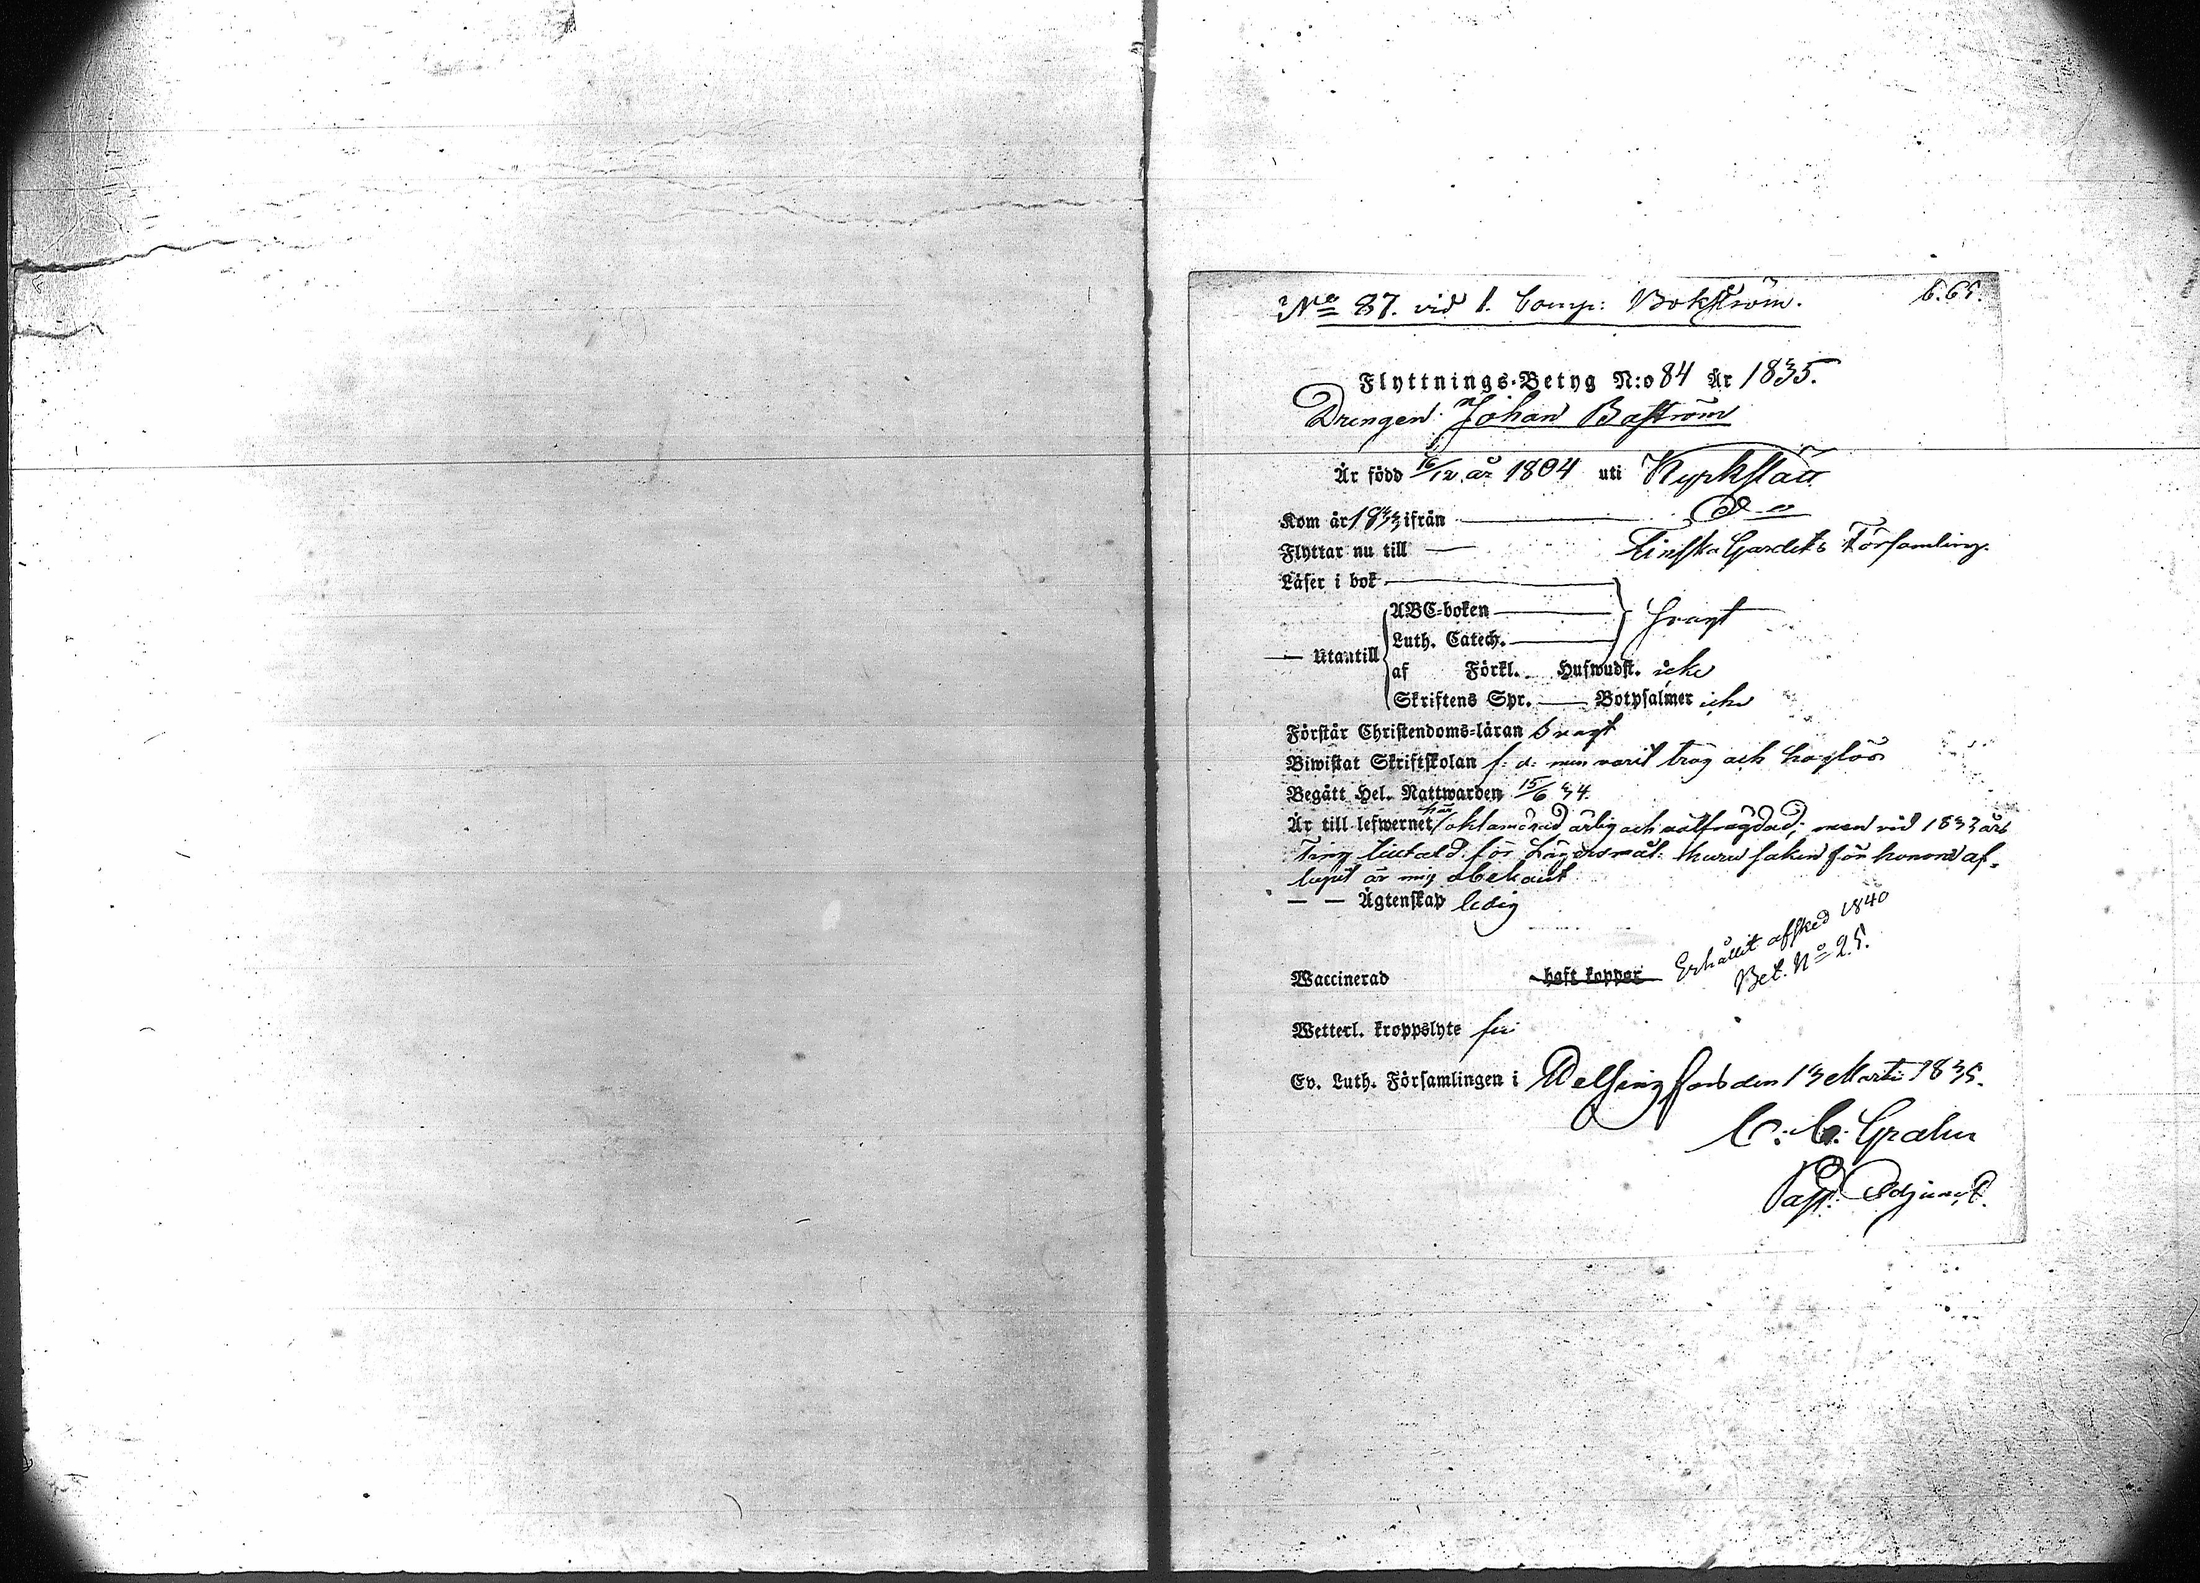 No 87. vid 1. Comp: Bokström.
6.65.
Flyttnings-Betyg N:o 84 År 1835.
Drengen Johan Boström
Är född 16/12 år 1804 uti Kyrkslätt
Kom år 1833 ifrån — D:o
Flyttar nu till — Finska Gardets Församling.
Läser i bok
ABC-boken
Luth. Catech.
svagt
— Utantill
af Förkl. Hufwudst. icke
Skriftens Spr. — Botpsalmer icke
Förstår Christendoms-läran svagt
Biwistat Skriftskolan f. d. men varit trög och hoglös
Begått Hel. Nattwarden 15/6 34.
Är till lefwernet här oklandrad ärlig och välfrägdad; men vid 1833 års
Ting tilltald för Lägersmål: huru saken för honom af-
lupit är mig obekant
— — Ägtenskap ledig
Erhållit afsked 1840
Bet. No 25.
Waccinerad haft koppor
Wetterl. kroppslyte fri
Ev. Luth. Församlingen i Helsingfors den 13 Martii 1835.
C. C. Grahn
Past. Adjunct.